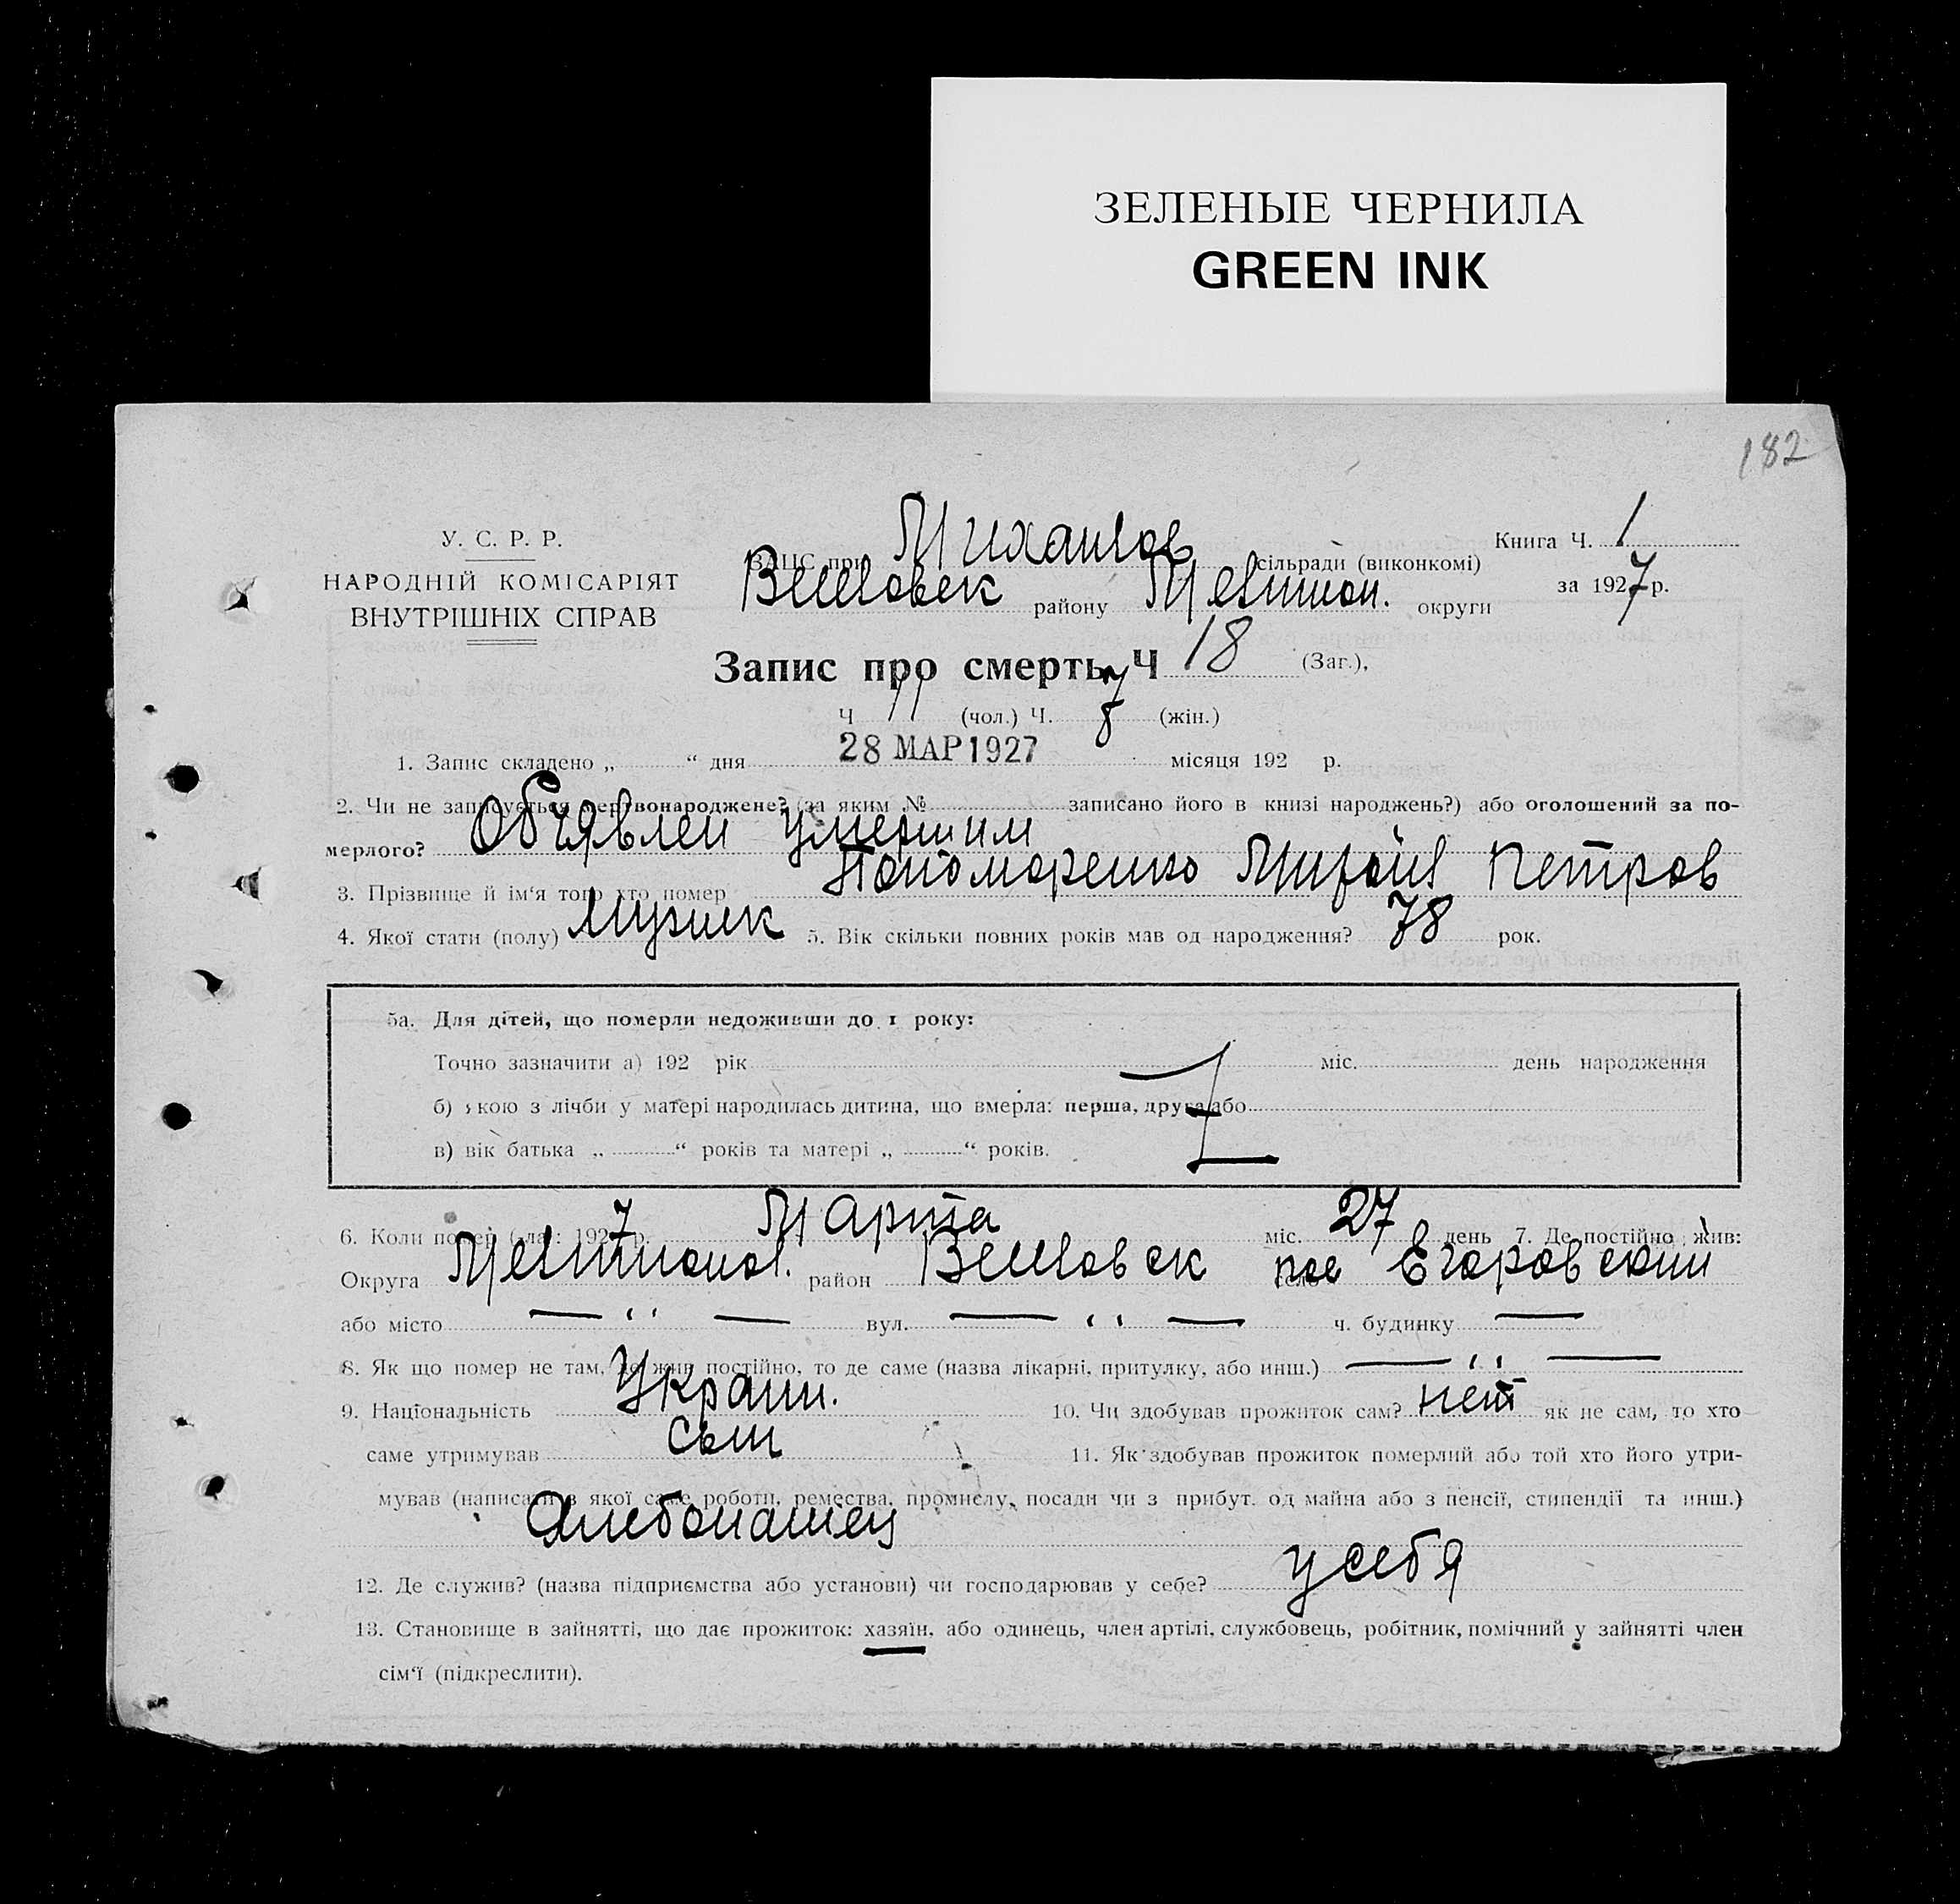 ЗЕЛЕНЫЕ ЧЕРНИЛА
GREEN INK
182
У. С. Р. Р.
НАРОДНІЙ КОМІСАРІЯТ
ВНУТРІШНІХ СПРАВ
ЗАГС при Михайлов сільради (виконкомі)
району Мелитоп. округи
Книга Ч. 1
за 1927 р.
Запис про смерть Ч 18 (Заг.),
Ч 11 (чол.) Ч. 7 (жін.)
1. Запис складено „ “ дня 28 МАР 1927 місяця 192 р.
2. Чи не записується мертвонароджене? (за яким № записано його в книзі народжень?) або оголошений за по-
мерлого? Объявлен умершим
3. Прізвище й ім‘я того хто помер Пономаренко Михаил Петров
4. Якої стати (полу) мужик 5. Вік скільки повних років мав од народження? 78 рок.
5а. Для дітей, що померли недоживши до 1 року:
Точно зазначити а) 192 рік міс. день народження
б) якою з лічби у матері народилась дитина, що вмерла: перша, друга або
в) вік батька „ “ років та матері „ “ років.
6. Коли помер (ла): 1927 р. Марта міс. 27 день 7. Де постійно жив:
Округа район пос Егоровский
або місто — „ — вул. — „ — ч. будинку —
8. Як що помер не там, де жив постійно, то де саме (назва лікарні, притулку, або инш.) — „ —
9. Національність Украин. 10. Чи здобував прожиток сам? нет як не сам, то хто
саме утримував Сын 11. Як здобував прожиток померлий або той хто його утри-
мував (написати з якої саме роботи, ремества, промислу, посади чи з прибут. од майна або з пенсії, стипендії та инш.)
12. Де служив? (назва підприємства або установи) чи господарював у себе? у себя
13. Становище в зайнятті, що дає прожиток: хазяїн, або одинець, член артілі, службовець, робітник, помічний у зайнятті член
сім‘ї (підкреслити).